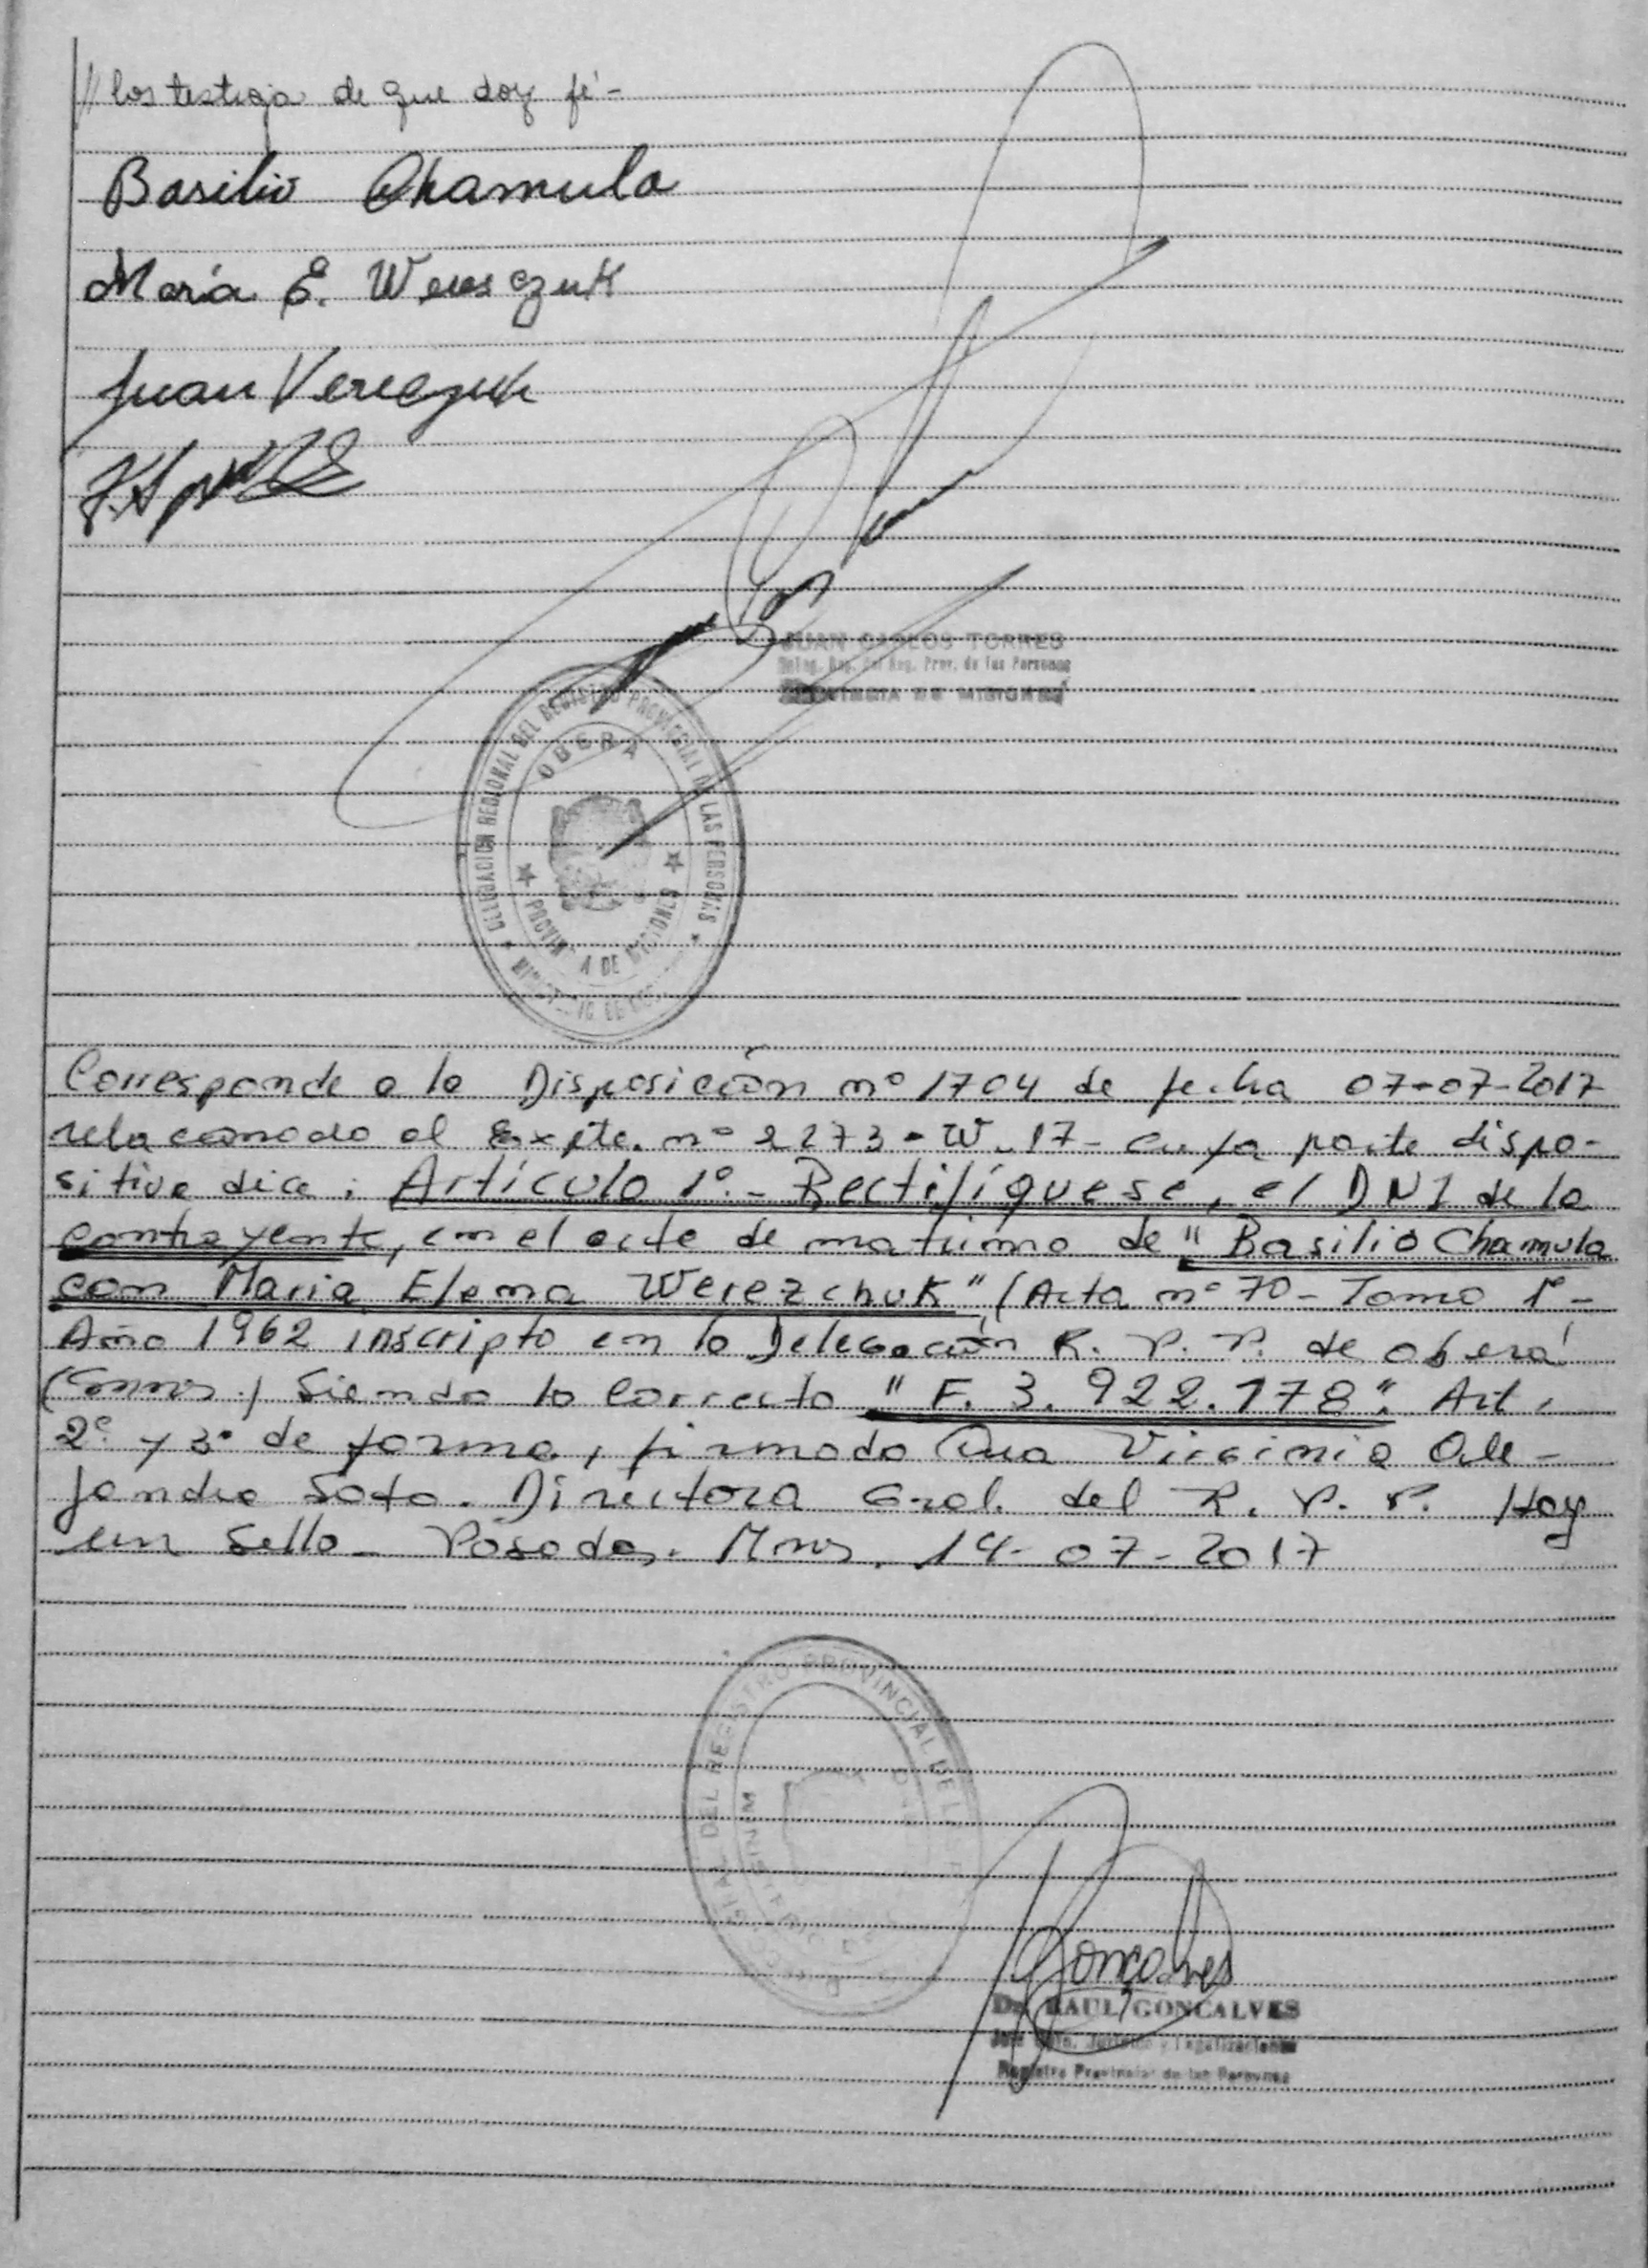 // los testigos de que doy fé-
Basilio Chamula
María E. Weresczuk
Juan Vereczuk
JUAN CARLOS TORRES
Deleg. Reg. del Reg. Prov. de las Personas
PROVINCIA DE MISIONES
DELEGACION REGIONAL DEL REGISTRO PROVINCIAL DE LAS PERSONAS
OBERA
PROVINCIA DE MISIONES
Corresponde a la Disposición nº 1704 de fecha 07-07-2017
relacionado al Expte. nº 2273-W-17- cuya parte dispo-
sitiva dice: Artículo 1º.- Rectifíquese, el DNI de la
contrayente, en el acta de matrimo de "Basilio Chamula
con Maria Elena Werezchuk" (Acta nº 70- Tomo 1º-
Año 1962 inscripto en la Delegación R. P. P. de oberá
Siendo lo correcto "F. 3.922.178". Art.
2º y 3º de forma, firmado Ana Virginia Ale-
jandra Soto. Directora Gral. del R. P. P. Hay
un Sello- Posadas. Mnes. 14-07-2017
DEL REGISTRO PROVINCIAL DE L
Gonçalves
Dr. RAUL GONCALVES
Registro Provincial de las Personas